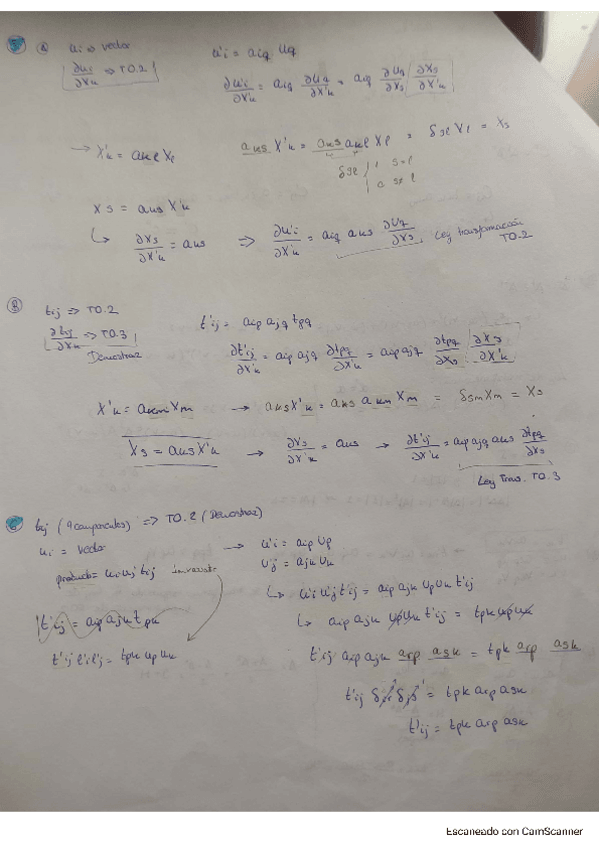 A) ui ⇒ vector u'i = aiq uq
∂ui/∂xk ⇒ TO.2 ∂u'i/∂x'k = aiq ∂uq/∂x'k = aiq ∂uq/∂xs ∂xs/∂x'k
→ x'k = akl xl aks x'k = aks akl xl = δsl xl = xs
δsl 1 s=l
0 s≠l
xs = aks x'k
↳ ∂xs/∂x'k = aks ⇒ ∂u'i/∂x'k = aiq aks ∂uq/∂xs, Ley transformación
TO.2
B) tij ⇒ TO.2 t'ij = aip ajq tpq
∂tij/∂xk ⇒ TO.3
Demostrar
∂t'ij/∂x'k = aip ajq ∂tpq/∂x'k = aip ajq ∂tpq/∂xs ∂xs/∂x'k
x'k = akm xm → aks x'k = aks akm xm = δsm xm = xs
xs = aks x'k → ∂xs/∂x'k = aks → ∂t'ij/∂x'k = aip ajq aks ∂tpq/∂xs
Ley Trans. TO.3
tij (9 componentes) ⇒ TO.2 (Demostrar)
ui = vector → u'i = aip up
producto = ui uj tij invariante
uj = ajk uk
↳ u'i u'j t'ij = aip ajk up uk t'ij
t'ij = aip ajk tpk
↳ aip ajk up uk t'ij = tpk up uk
t'ij u'i u'j = tpk up uk
t'ij aip ajk arp ask = tpk arp ask
t'ij δir δjs = tpk arp ask
t'ij = tpk arp ask
Escaneado con CamScanner